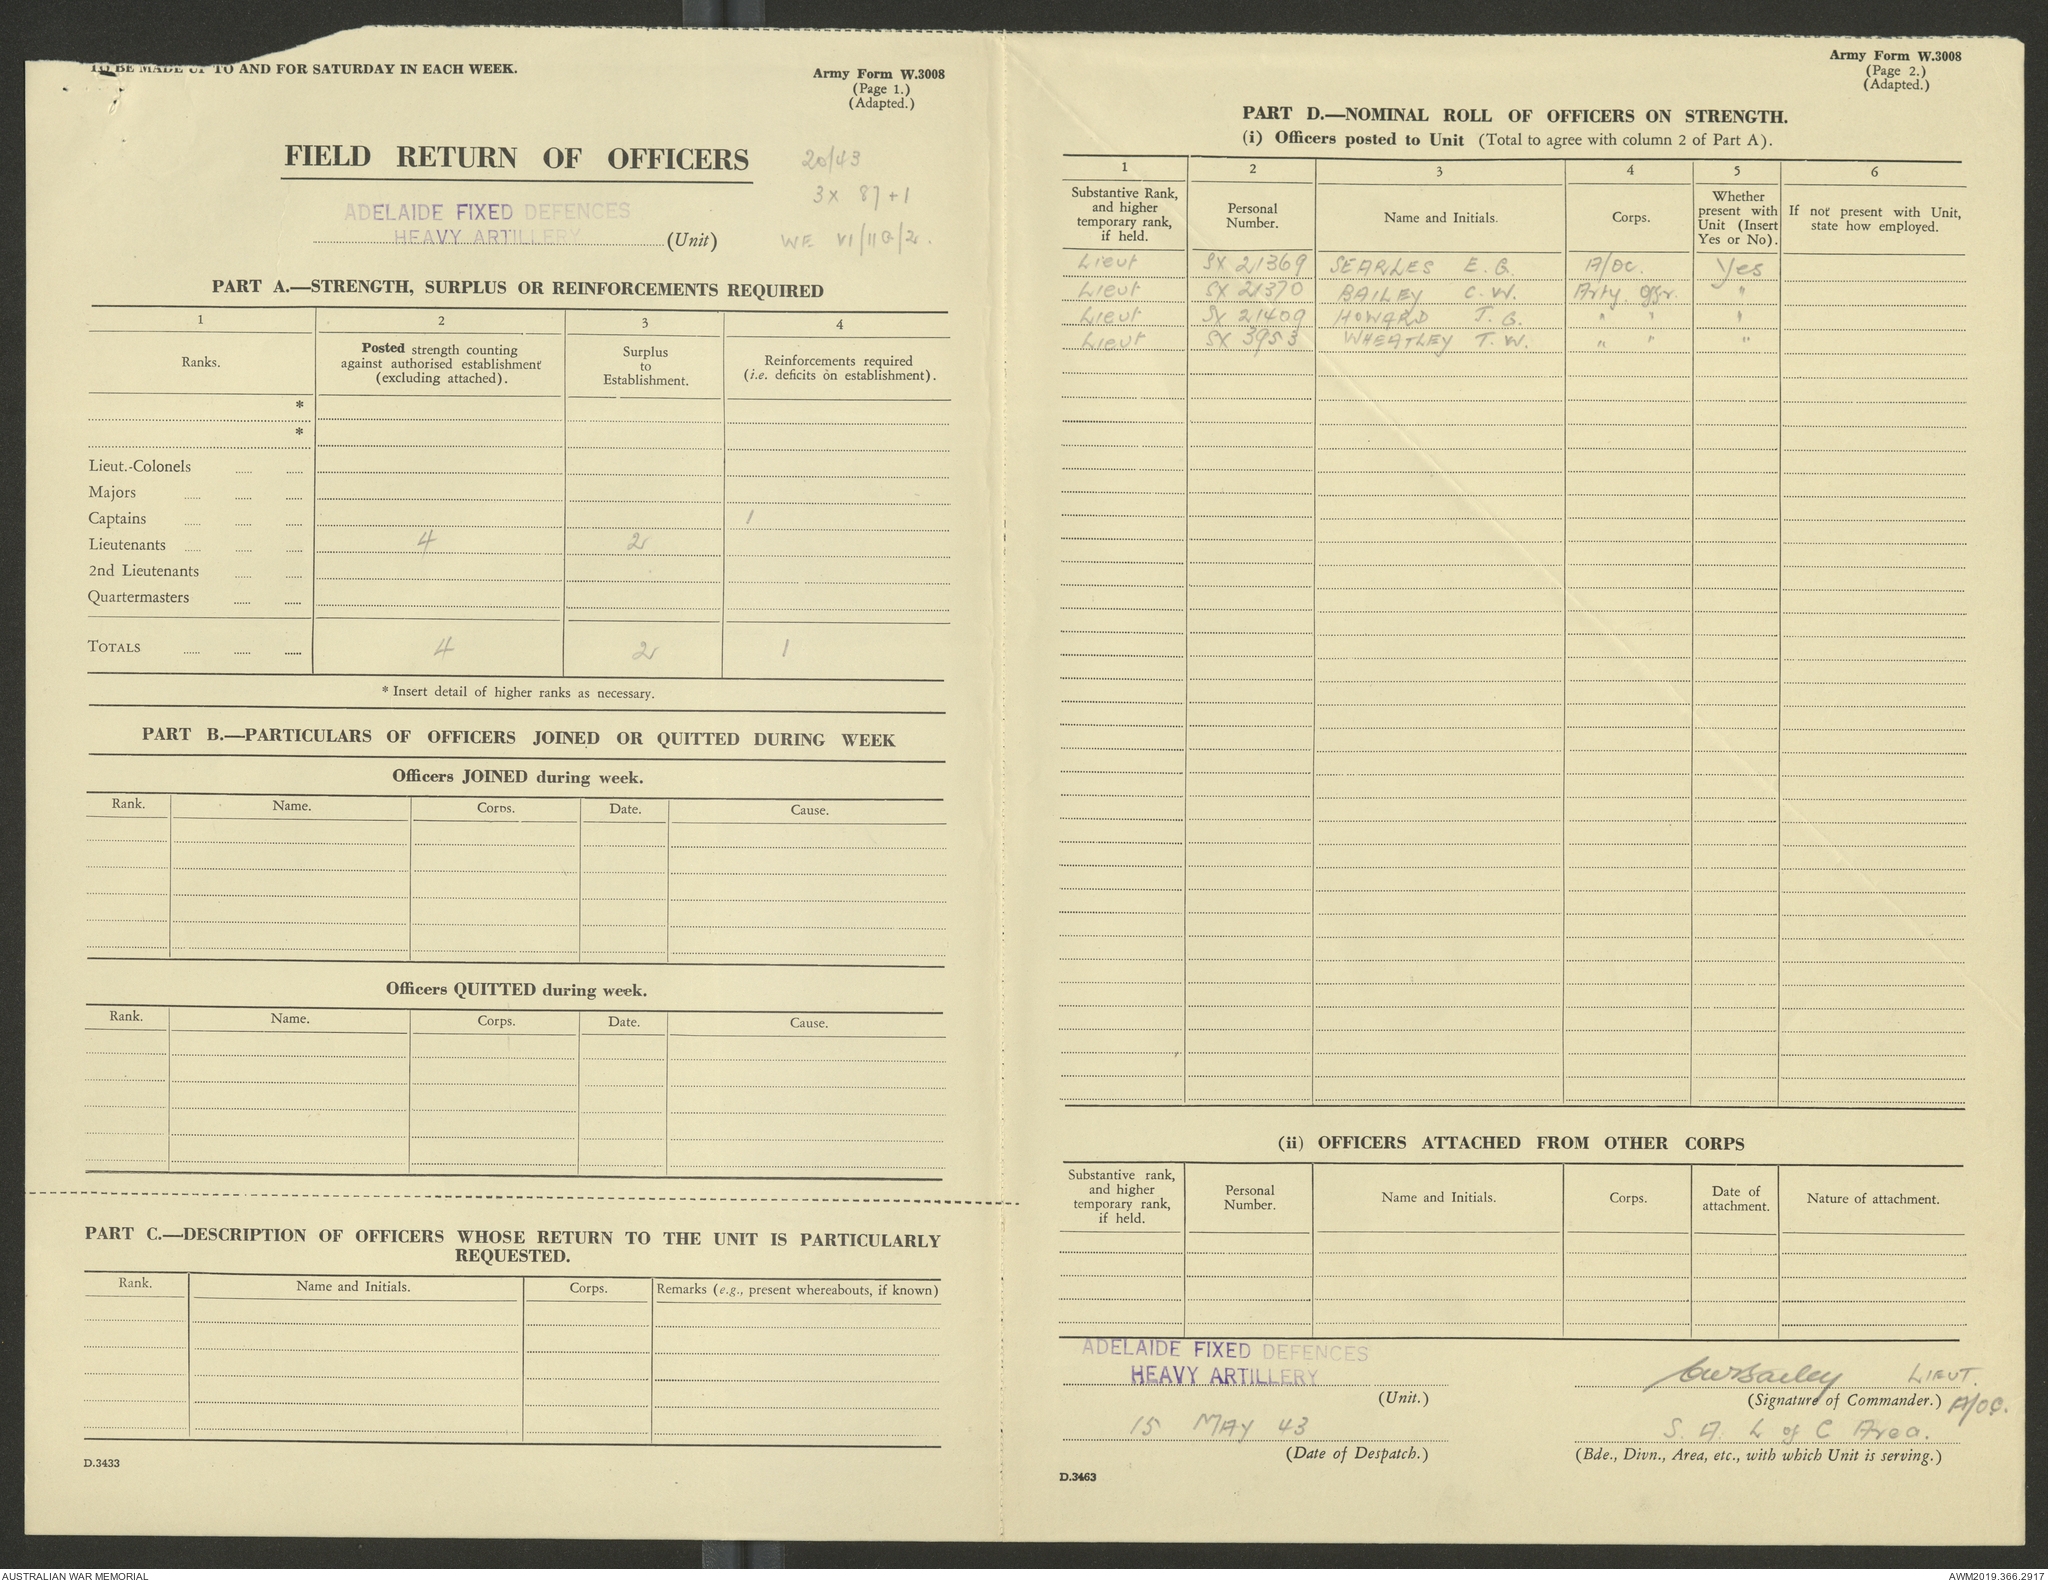 TO BE MADE UP TO AND FOR SATURDAY IN EACH WEEK.
Army Form W.3008
(Page 1.)
(Adapted.)
FIELD RETURN OF OFFICERS
20/43
3 x 87 + 1
WE VI/11G/2.
ADELAIDE FIXED DEFENCES
HEAVY ARTILLERY (Unit)
PART A.—STRENGTH, SURPLUS OR REINFORCEMENTS REQUIRED
1 2 3 4
Ranks.
Posted strength counting against authorised establishment (excluding attached).
Surplus to Establishment.
Reinforcements required (i.e. deficits on establishment).
*
*
Lieut.-Colonels
Majors
Captains 1
Lieutenants 4 2
2nd Lieutenants
Quartermasters
TOTALS 4 2 1
* Insert detail of higher ranks as necessary.
PART B.—PARTICULARS OF OFFICERS JOINED OR QUITTED DURING WEEK
Officers JOINED during week.
Rank. Name. Corps. Date. Cause.
Officers QUITTED during week.
Rank. Name. Corps. Date. Cause.
PART C.—DESCRIPTION OF OFFICERS WHOSE RETURN TO THE UNIT IS PARTICULARLY
REQUESTED.
Rank. Name and Initials. Corps. Remarks (e.g., present whereabouts, if known)
D.3433
Army Form W.3008
(Page 2.)
(Adapted.)
PART D.—NOMINAL ROLL OF OFFICERS ON STRENGTH.
(i) Officers posted to Unit (Total to agree with column 2 of Part A).
1 2 3 4 5 6
Substantive Rank, and higher temporary rank, if held.
Personal Number.
Name and Initials.
Corps.
Whether present with Unit (Insert Yes or No).
If not present with Unit, state how employed.
Lieut SX 21369 SEARLES E. G. A/OC. Yes
Lieut SX 21370 BAILEY C. W. Arty. Offr. "
Lieut SX 21409 HOWARD J. G. " " "
Lieut SX 3953 WHEATLEY T. W. " " "
(ii) OFFICERS ATTACHED FROM OTHER CORPS
Substantive rank, and higher temporary rank, if held.
Personal Number.
Name and Initials.
Corps.
Date of attachment.
Nature of attachment.
ADELAIDE FIXED DEFENCES
HEAVY ARTILLERY
(Unit.)
CWBailey LIEUT.
(Signature of Commander.) A/OC.
15 MAY 43
(Date of Despatch.)
S. A. L of C Area.
(Bde., Divn., Area, etc., with which Unit is serving.)
D.3463
AUSTRALIAN WAR MEMORIAL
AWM2019.366.2917